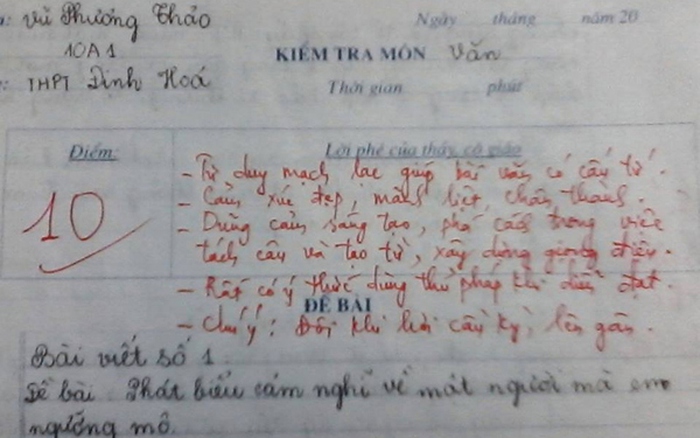 : Vũ Phương Thảo
Ngày tháng năm 20
10A1
KIỂM TRA MÔN Văn
: THPT Định Hoá
Thời gian phút
Điểm:
Lời phê của thầy, cô giáo
10
- Tư duy mạch lạc giúp bài văn có cấu tứ.
- Cảm xúc đẹp, mãnh liệt, chân thành.
- Dũng cảm sáng tạo, phá cách trong việc
tách câu và tạo từ, xây dựng giọng điệu.
- Rất có ý thức dùng thủ pháp khi diễn đạt.
ĐỀ BÀI
- Chú ý: Đôi khi hơi cầu kỳ, lên gân.
Bài viết số 1.
Đề bài. Phát biểu cảm nghĩ về một người mà em
ngưỡng mộ.